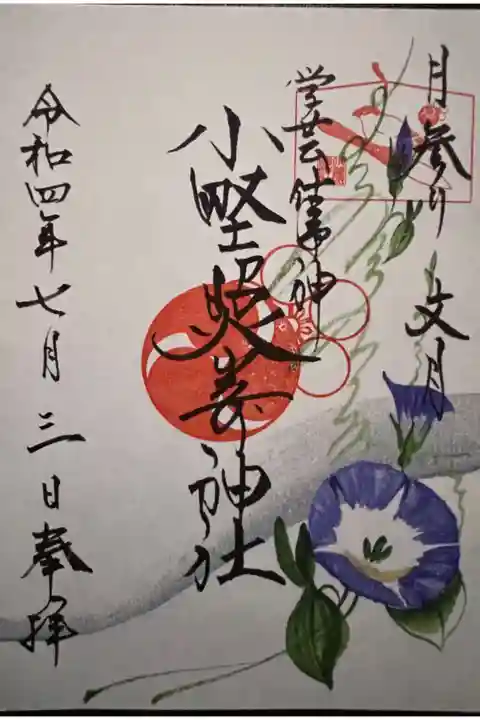 月参り 文月
学芸の神
小野照崎神社
令和四年七月三日奉拝